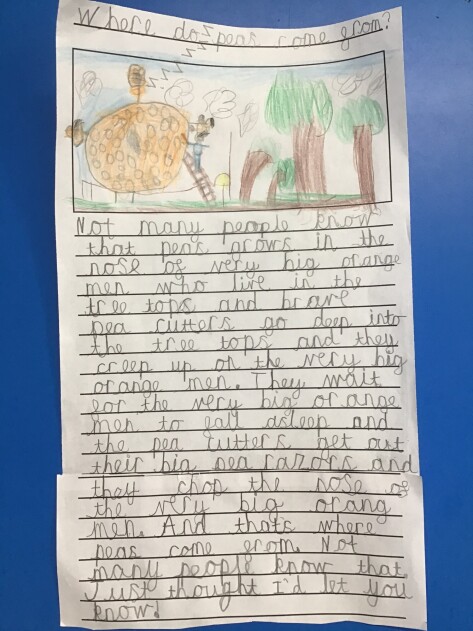 Where do peas come from?
zzzzzzz
Not many people know
that peas grows in the
nose of very big orange
men who live in the
tree tops and brave
pea cutters go deep into
the tree tops and they
creep up on the very big
orange men. They wait
for the very big orange
men to fall asleep and
the pea cutters get out
their big pea razors and
they chop the nose of
the very big orang
men. And thats where
peas come from. Not
many people know that.
Just thought I'd let you
know!